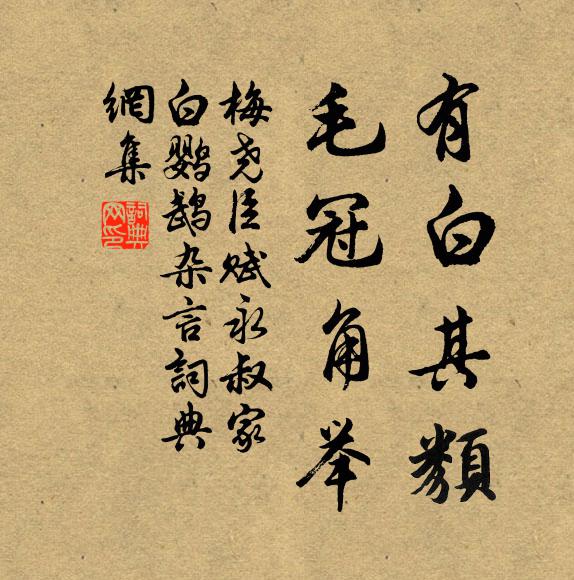 有白其類
毛冠角举
梅尧臣赋永叔家
白鹦鹉杂言詞典
網集
詞典
网印